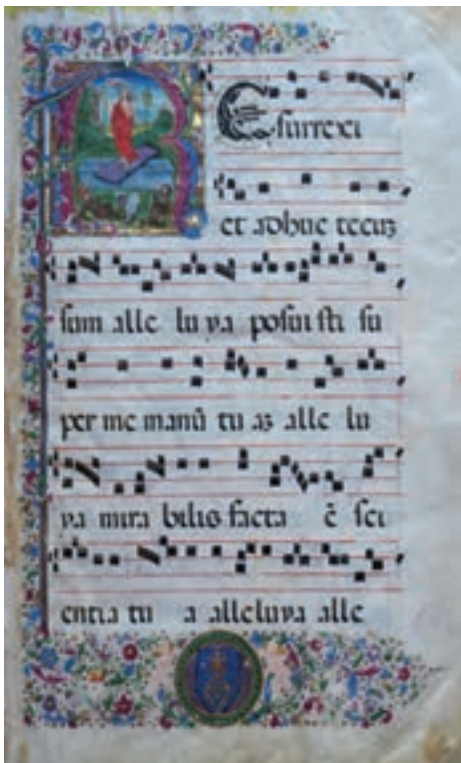 R Esurrexi
et adhuc tecuz
sum alle lu ya posui sti su
per me manū tu az alle lu
ya mira bilis facta ē sci
entia tu a alleluya alle